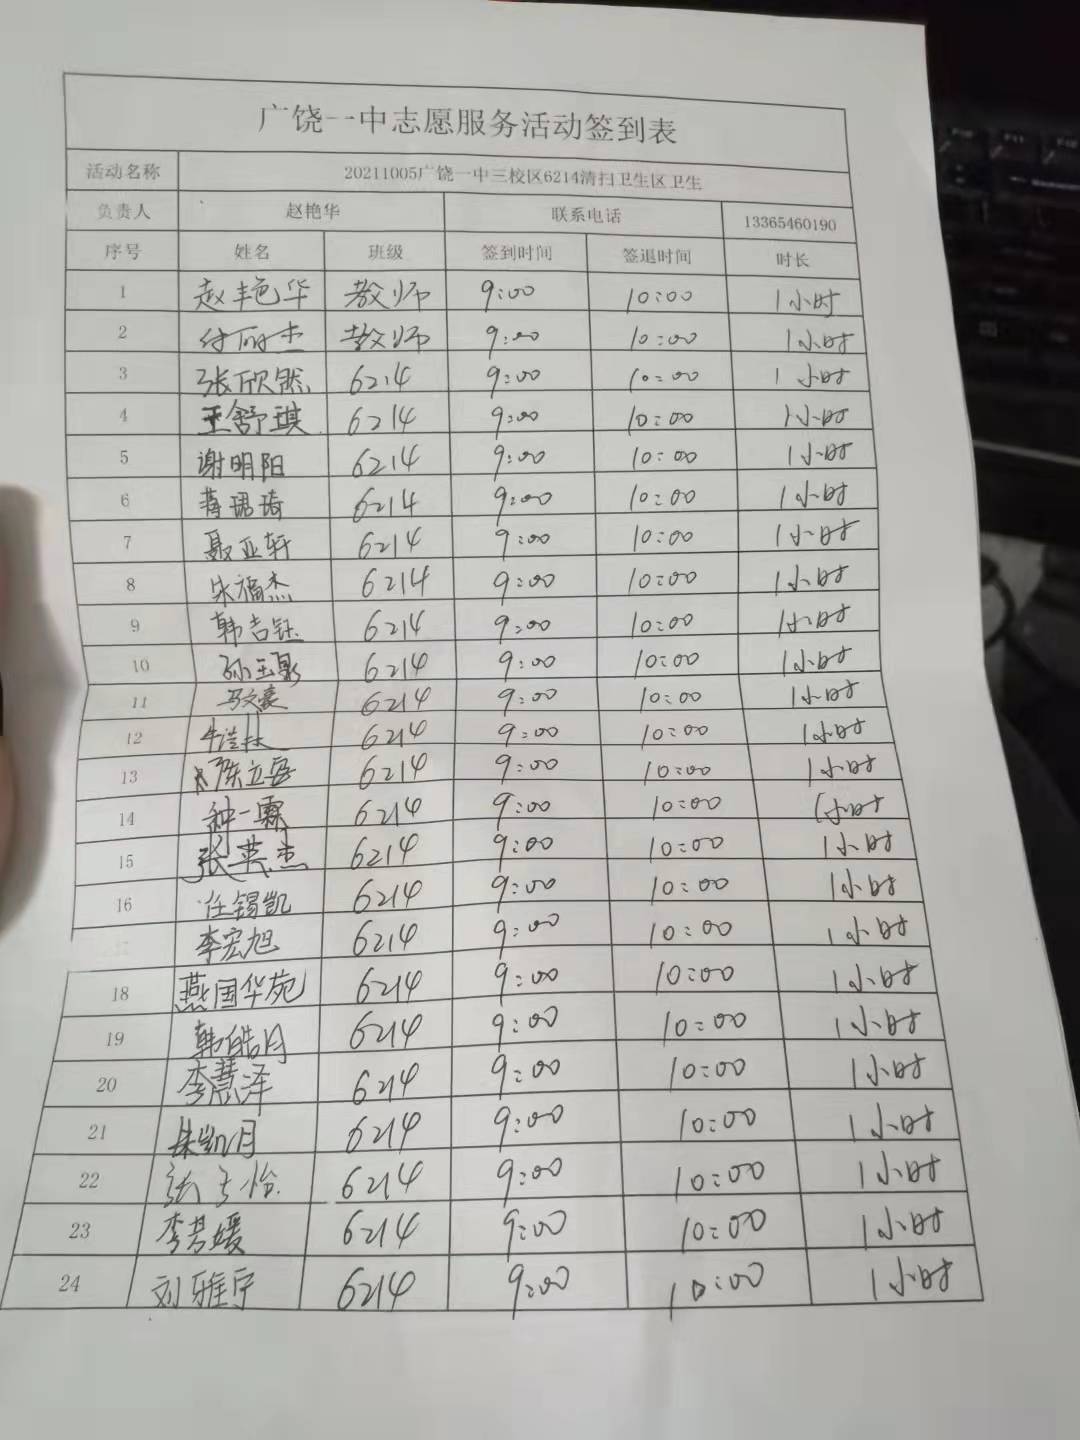 广饶一中志愿服务活动签到表
活动名称 20211005广饶一中三校区6214清扫卫生区卫生
负责人 赵艳华 联系电话 13365460190
序号 姓名 班级 签到时间 签退时间 时长
1 赵艳华 教师 9:00 10:00 1小时
2 付丽杰 教师 9:00 10:00 1小时
3 张欣然 6214 9:00 10:00 1小时
4 王舒琪 6214 9:00 10:00 1小时
5 谢明阳 6214 9:00 10:00 1小时
6 蒋珺琦 6214 9:00 10:00 1小时
7 聂亚轩 6214 9:00 10:00 1小时
8 朱福杰 6214 9:00 10:00 1小时
9 韩吉钰 6214 9:00 10:00 1小时
10 6214 9:00 10:00 1小时
11 马文豪 6214 9:00 10:00 1小时
12 6214 9:00 10:00 1小时
13 6214 9:00 10:00 1小时
14 种一霖 6214 9:00 10:00 1小时
15 张英杰 6214 9:00 10:00 1小时
16 任锡凯 6214 9:00 10:00 1小时
李宏旭 6214 9:00 10:00 1小时
18 燕国华苑 6214 9:00 10:00 1小时
19 韩皓月 6214 9:00 10:00 1小时
20 李慧泽 6214 9:00 10:00 1小时
21 朱凯月 6214 9:00 10:00 1小时
22 6214 9:00 10:00 1小时
23 李芳媛 6214 9:00 10:00 1小时
24 刘雅宁 6214 9:00 10:00 1小时